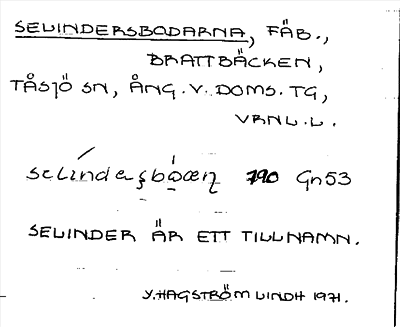 SELINDERSBODARNA, FÄB.,
BRATTBÄCKEN,
TÅSJÖ SN, ÅNG. V. DOMS. TG,
VRNL. L.
790 Gn53
SELINDER ÄR ETT TILLNAMN.
Y. HAGSTRÖM LINDH 1971.